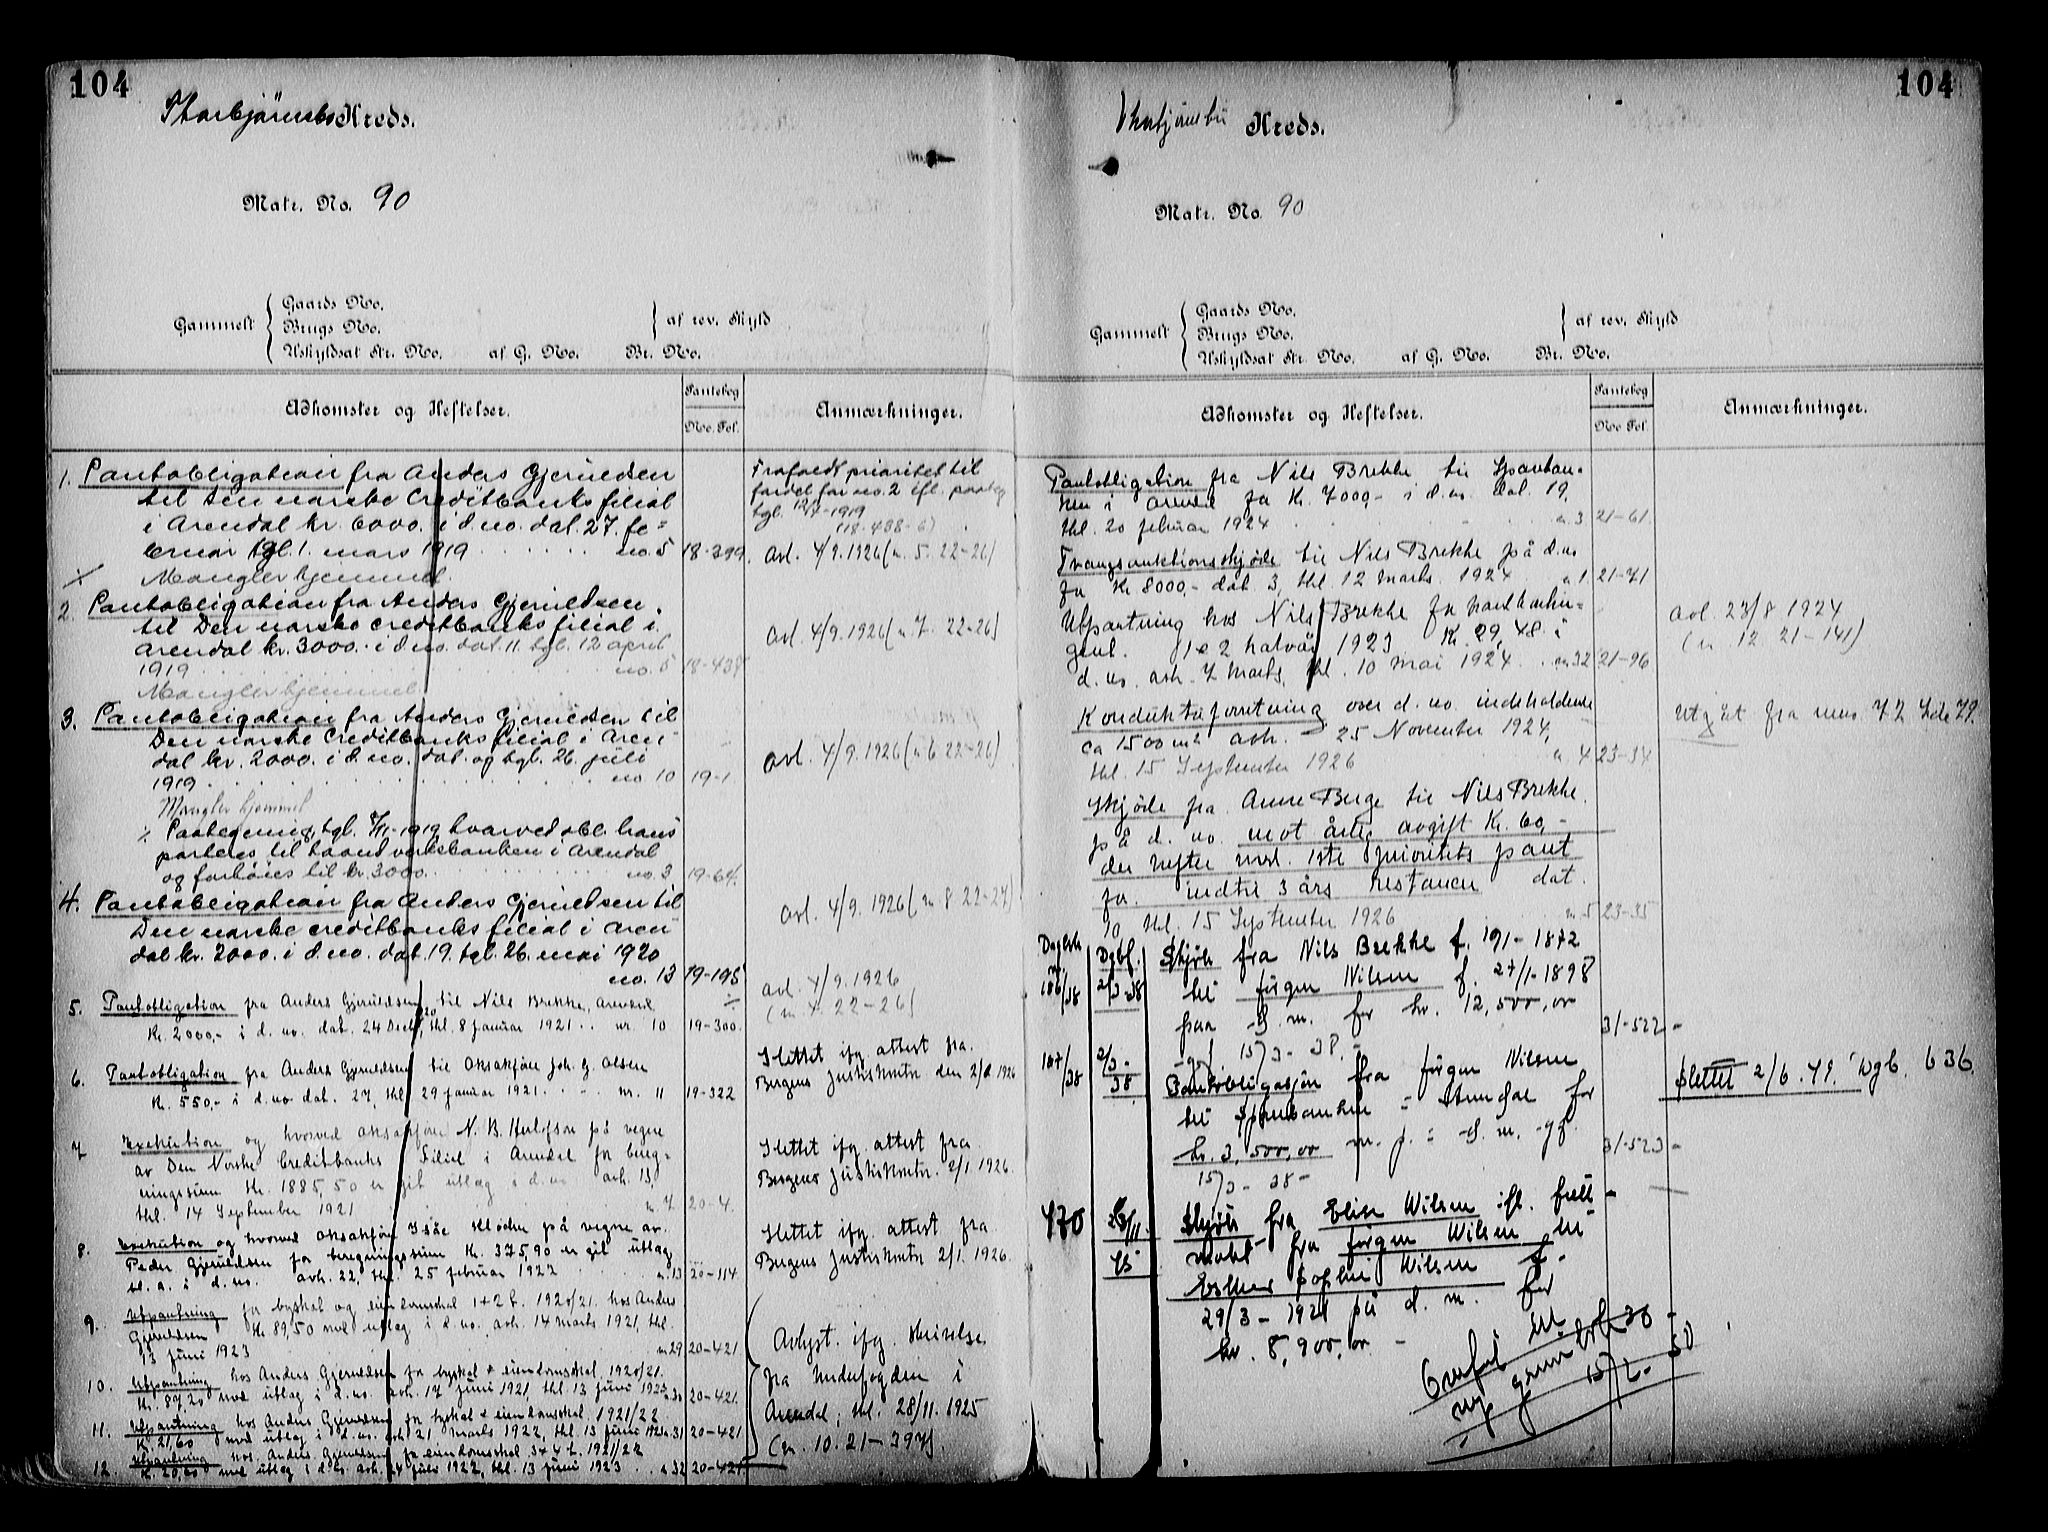 104
Thorbjørnsbo Kreds.
Matr. No. 90
Gammelt
Gaards No.
Brugs No.
Uskyldsat Str. No. af G. No. Br. No.
af rev. Skyld
Adkomster og Heftelser.
Pantebog
No. Fol.
Anmærkninger.
1. Pantobligation fra Anders Gjeruldsen
til Den norske Creditbanks filial
i Arendal kr. 6000. i d. no. dat. 27. fe=
bruar tgl. 1. mars 1919 no. 5 18-399.
Mangler hjemmel.
Frafaldt prioritet til
fordel for no. 2 ifl. paateg
tgl. 12/4-1919
(18-488-6)
Avl. 4/9. 1926 (n. 5. 22-26)
2. Pantobligation fra Anders Gjeruldsen
til Den norske Creditbanks filial i
Arendal kr. 3000.- i d. no. dat. 11. tgl. 12 april
1919 no. 5 18-438
Mangler hjemmel.
Avl. 4/9. 1926 (n. 7. 22-26)
3. Pantobligation fra Anders Gjeruldsen til
Den norske Creditbanks filial i Aren
dal kr. 2000. i d. no. dat. og tgl. 26. juli
1919 no. 10 19-1.
Mangler hjemmel
Avl. 4/9. 1926 (n 6 22-26)
Paategning, tgl. 7/11-1919 hvorved obl. trans
porteres til Haandverksbanken i Arendal
og forhøies til kr. 3000. no. 3 19-64.
4. Pantobligation fra Anders Gjeruldsen til
Den norske Creditbanks filial i Aren
dal kr. 2000. i d. no. dat. 19. tgl. 26. mai 1920
no. 13 19-195
Avl. 4/9. 1926 (n. 8 22-27)
5. Pantobligation fra Anders Gjeruldsen, til Nils Brekke, Arendal
Kr. 2000,- i d. no. dat. 24 Decbr 20, thl. 8 Januar 1921 nr. 10 19-300.
Avl. 4/9. 1926
(n. 4. 22-26)
6. Pantobligation fra Anders Gjeruldsen til Oksakfører Joh. G. Olsen
Kr. 550,- i d. no dat. 27, thl. 29 januar 1921. nr. 11 19-322
Slettet ifg. attest fra
Byens Justiskontor den 2/1 1926
7 Exekution og hvorved Oksakfører N. B. Herlofson på vegne
av Den Norske Creditbanks Filial i Arendal for bereg-
ningssum Kr. 1885,50 er git utlæg i d. no avh. 13,
thl. 14 September 1921 n. 7 20-4.
Slettet ifg attest fra
Byens Justiskontor. 2/1. 1926.
8. Exekution og hvorved Oksakfører Isak Kløcker på vegne av
Peder Gjeruldsen for beregningssum Kr. 375,90 er git utlæg
bl. a. i d. no. avh. 22, thl. 25 februar 1922 n. 13 20-114
Slettet ifg attest fra
Byens Justiskontor 2/1. 1926.
9. Utpantning for byskat og eiendomsskat 1+2 t. 1920/21. hos Anders
Gjeruldsen Kr. 89,50 med utlæg i d. no. avh. 14 Marts 1921, thl.
13 Juni 1923 n 29 20-421
10. Utpantning hos Anders Gjeruldsen for byskat & eiendomsskat. 1920/21.
Kr. 87,20 med utlæg i d. no. avh. 17 Juni 1921, thl. 13 Juni 1923 n. 30 20-421.
11. Utpantning hos Anders Gjeruldsen for byskat & eiendomsskat. 1921/22
Kr. 21,60 med utlæg i d. no. avh 21 Marts 1922, thl. 13 Juni 1923 n. 31 20-421
12. Utpantning hos Anders Gjeruldsen for eiendomsskat 3+4 t. 1921/22
Kr. 20,20 med utlæg i d. no. avh. 24 Juli 1922, thl. 13 Juni 1923 n 32 20-421
Avlyst. ifg. skrivelse
fra Underfogden i
Arendal, thl. 28/11. 1925
(n. 10. 21-397).
104
Thorbjørnsbo Kreds.
Matr. No. 90
Gammelt
Gaards No.
Brugs No.
Uskyldsat Str. No. af G. No. Br. No.
af rev. Skyld
Adkomster og Heftelser.
Pantebog
No Fol.
Anmærkninger.
Pantobligation fra Nils Brekke til Sparban-
ken i Arendal for Kr. 7000,- i d. no. dat. 19,
thl. 20 februar 1924 n. 3 21-61.
Tvangsauktionsskjøde til Nils Brekke på d. no
for Kr 8000,- dat 3, thl. 12 Marts. 1924 n 1. 21-71
Utpantning hos Nils Brekke for
1 & 2 halvår 1923 Kr. 29,48. i
d. no. avh. 7 Marts, thl. 10 Mai 1924. n 32 21-96
Avl. 23/8 1924
(n. 12 21-141)
Konduktørforretning over d. no. indeholdende
ca 1500 m2 avh. 25 November 1924,
thl. 15 September 1926 n. 4 23-34
Utgåt fra
Skjøde fra Anne Berge til Nils Brekke
på d. no. mot årlig avgift Kr. 60,-
der hefter med. 1ste prioritets pant
for indtil 3 års restancer dat.
10 thl. 15 September 1926 n. 5 23-35
Dagbok nr. 186/38
Dgbf. 2/3-38
Skjøte fra Nils Brekke f. 19/-1872
til Jørgen Nilsen f. 27/1-1898
paa d. m. for kr. 12,500,00
15/3-38,- 31-522-
187/38 2/3-38
Pantobligasjon fra Jørgen Nilsen
til Sparebanken i Arendal for
kr. 3,500,00 m. p. i d. m.
15/3-38- 31-523-
Slettet 2/6.49. Dgb. 636,
470 28/11 45
Skjøte fra Elise Nilsen ifl. full-
makt fra Jørgen Nilsen til
Esther Sophie Nilsen f.
29/3-1921 på d. m. for
kr. 8,900,00.-
Overført til
ny
15/2-50